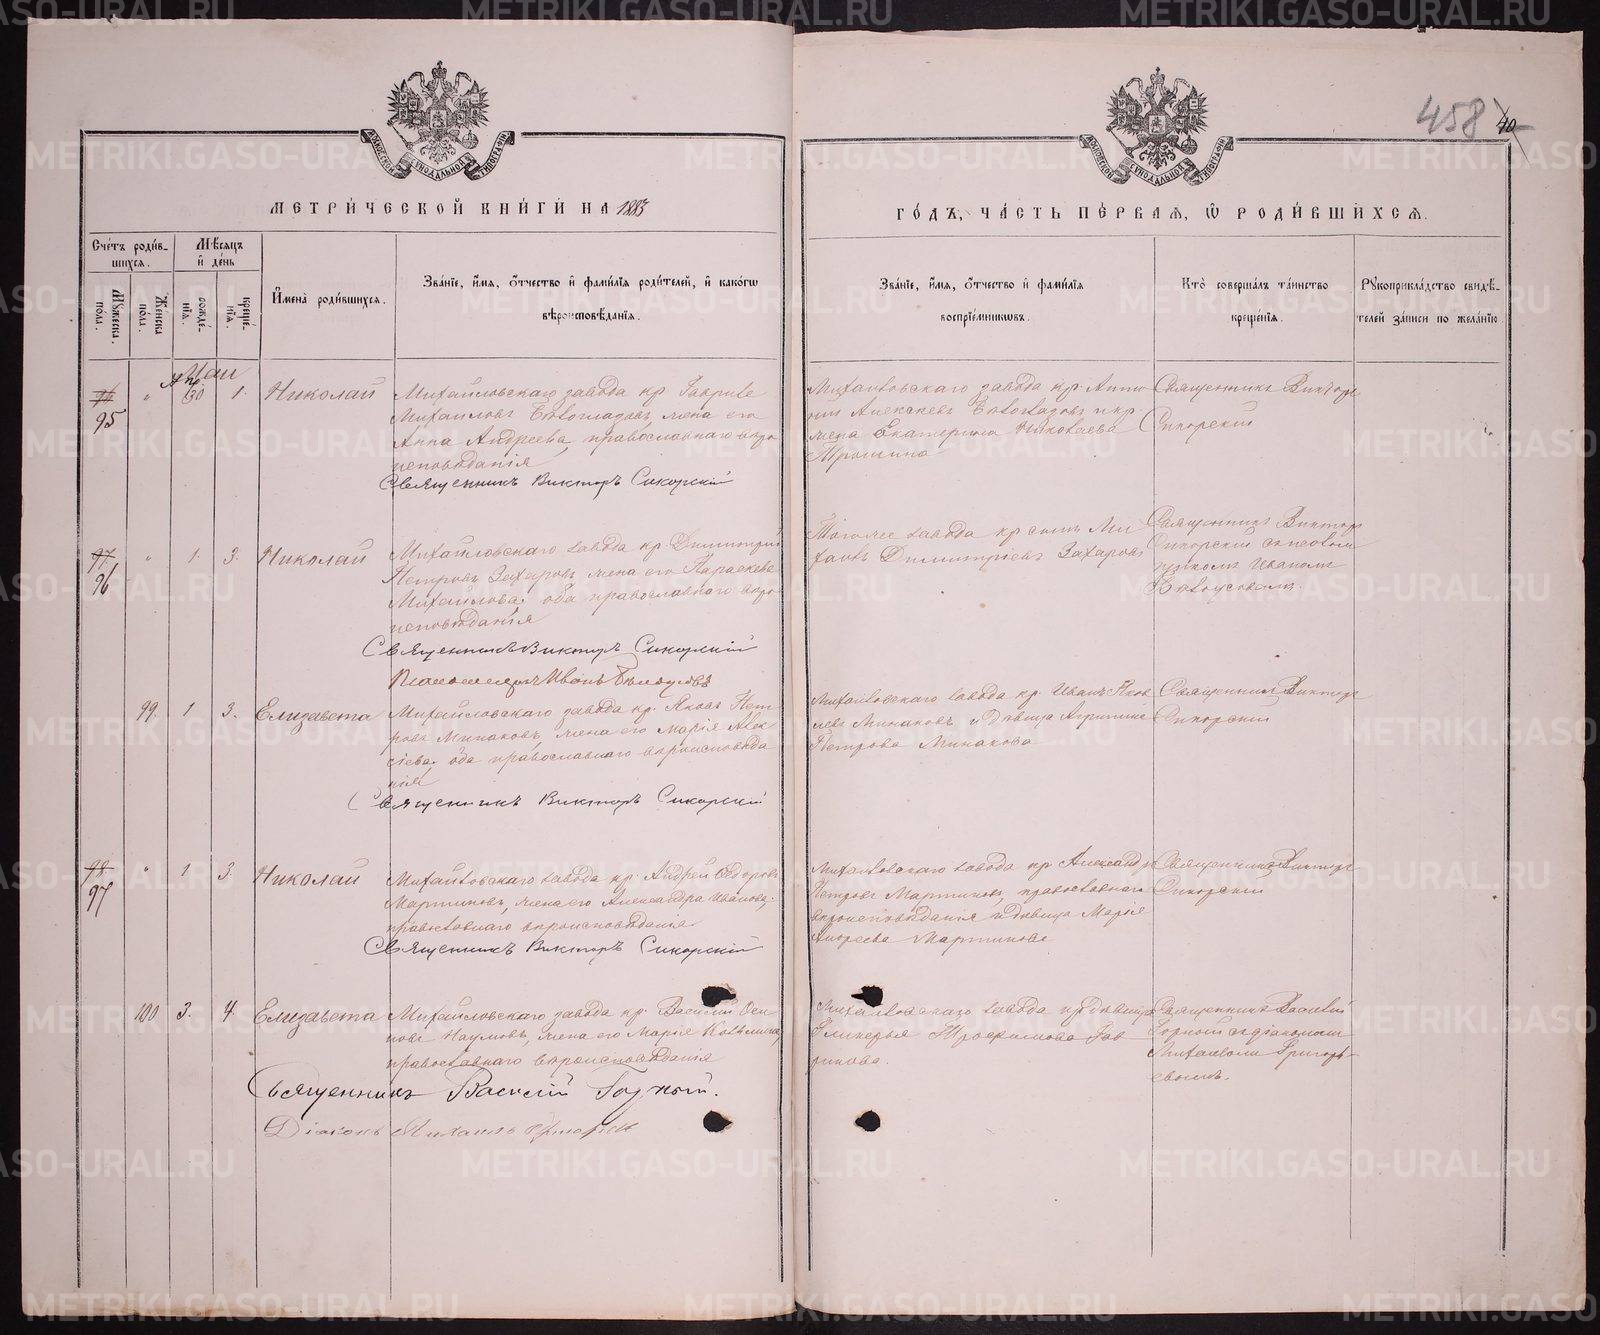 458 40
МЕТРИЧЕСКОЙ КНИГИ НА 1883
ГОДЪ, ЧАСТЬ ПЕРВАЯ, Ѡ РОДИВШИХСЯ.
Счетъ родив-
шихся.
Мѣсяцъ
и день
Мужеска
пола.
Женска
пола.
рожде-
нія.
креще-
нія.
Имена родившихся.
Званіе, имя, отчество и фамилія родителей, и какогѡ
вѣроисповѣданія.
Званіе, имя, отчество и фамилія
воспріемникѡвъ.
Кто совершалъ таинство
крещенія.
Рукоприкладство свидѣ-
телей записи по желанію
Май
Апр.
95 " 30 1. Николай
Михайловскаго завода кр. Гаврiилъ
Михаиловъ, жена его
Анна Андреева, православнаго вѣро
исповѣданія
Священникъ Викторъ Сикорскій
Михайловскаго завода кр.
жена Екатерина Николаева
Трошина
Священникъ Викторъ
Сикорскій
97
96 " 1. 3. Николай
Михайловскаго завода кр. Димитрій
Петровъ Захаровъ, жена его Параскева
Михайлова, оба православнаго вѣро
исповѣданія
Священникъ Викторъ Сикорскій
Псаломщикъ Иванъ Бѣлоусовъ
Тогоже завода кр. сынъ Ми
хаилъ Димитріевъ Захаровъ
Священникъ Викторъ
Сикорскій съ псалом
щикомъ Иваномъ
Бѣлоусовымъ.
99. 1 3. Елизавета
Михайловскаго завода кр. Яковъ Пет
ровъ Минаковъ, жена его Марія Алек
сіева, оба православнаго вѣроисповѣда
нія
Священникъ Викторъ Сикорскій
Михайловскаго завода кр. Иванъ Яков
левъ Минаковъ и дѣвица
Петрова Минакова
Священникъ Викторъ
Сикорскій
98
97 " 1 3. Николай
Михайловскаго завода кр. Андрей Ѳедоровъ
Мартиновъ, жена его Александра Иванова,
православнаго вѣроисповѣданія
Священникъ Викторъ Сикорскій
Михайловскаго завода кр. Александръ
Петровъ Мартиновъ, православнаго
вѣроисповѣданія и дѣвица Марія
Андреева Мартинова
Священникъ Викторъ
Сикорскій
100 3. 4 Елизавета
Михайловскаго завода кр. Василій Оси
повъ Наумовъ, жена его Марія
православнаго вѣроисповѣданія
Священникъ Василій Горный.
Діаконъ Михаилъ Григорьевъ
Михайловскаго завода кр. дѣвица
Гликерья Трофимова
Священникъ Василій
Горный съ діакономъ
Михаиломъ Григорь
евымъ.
METRIKI.GASO-URAL.RU